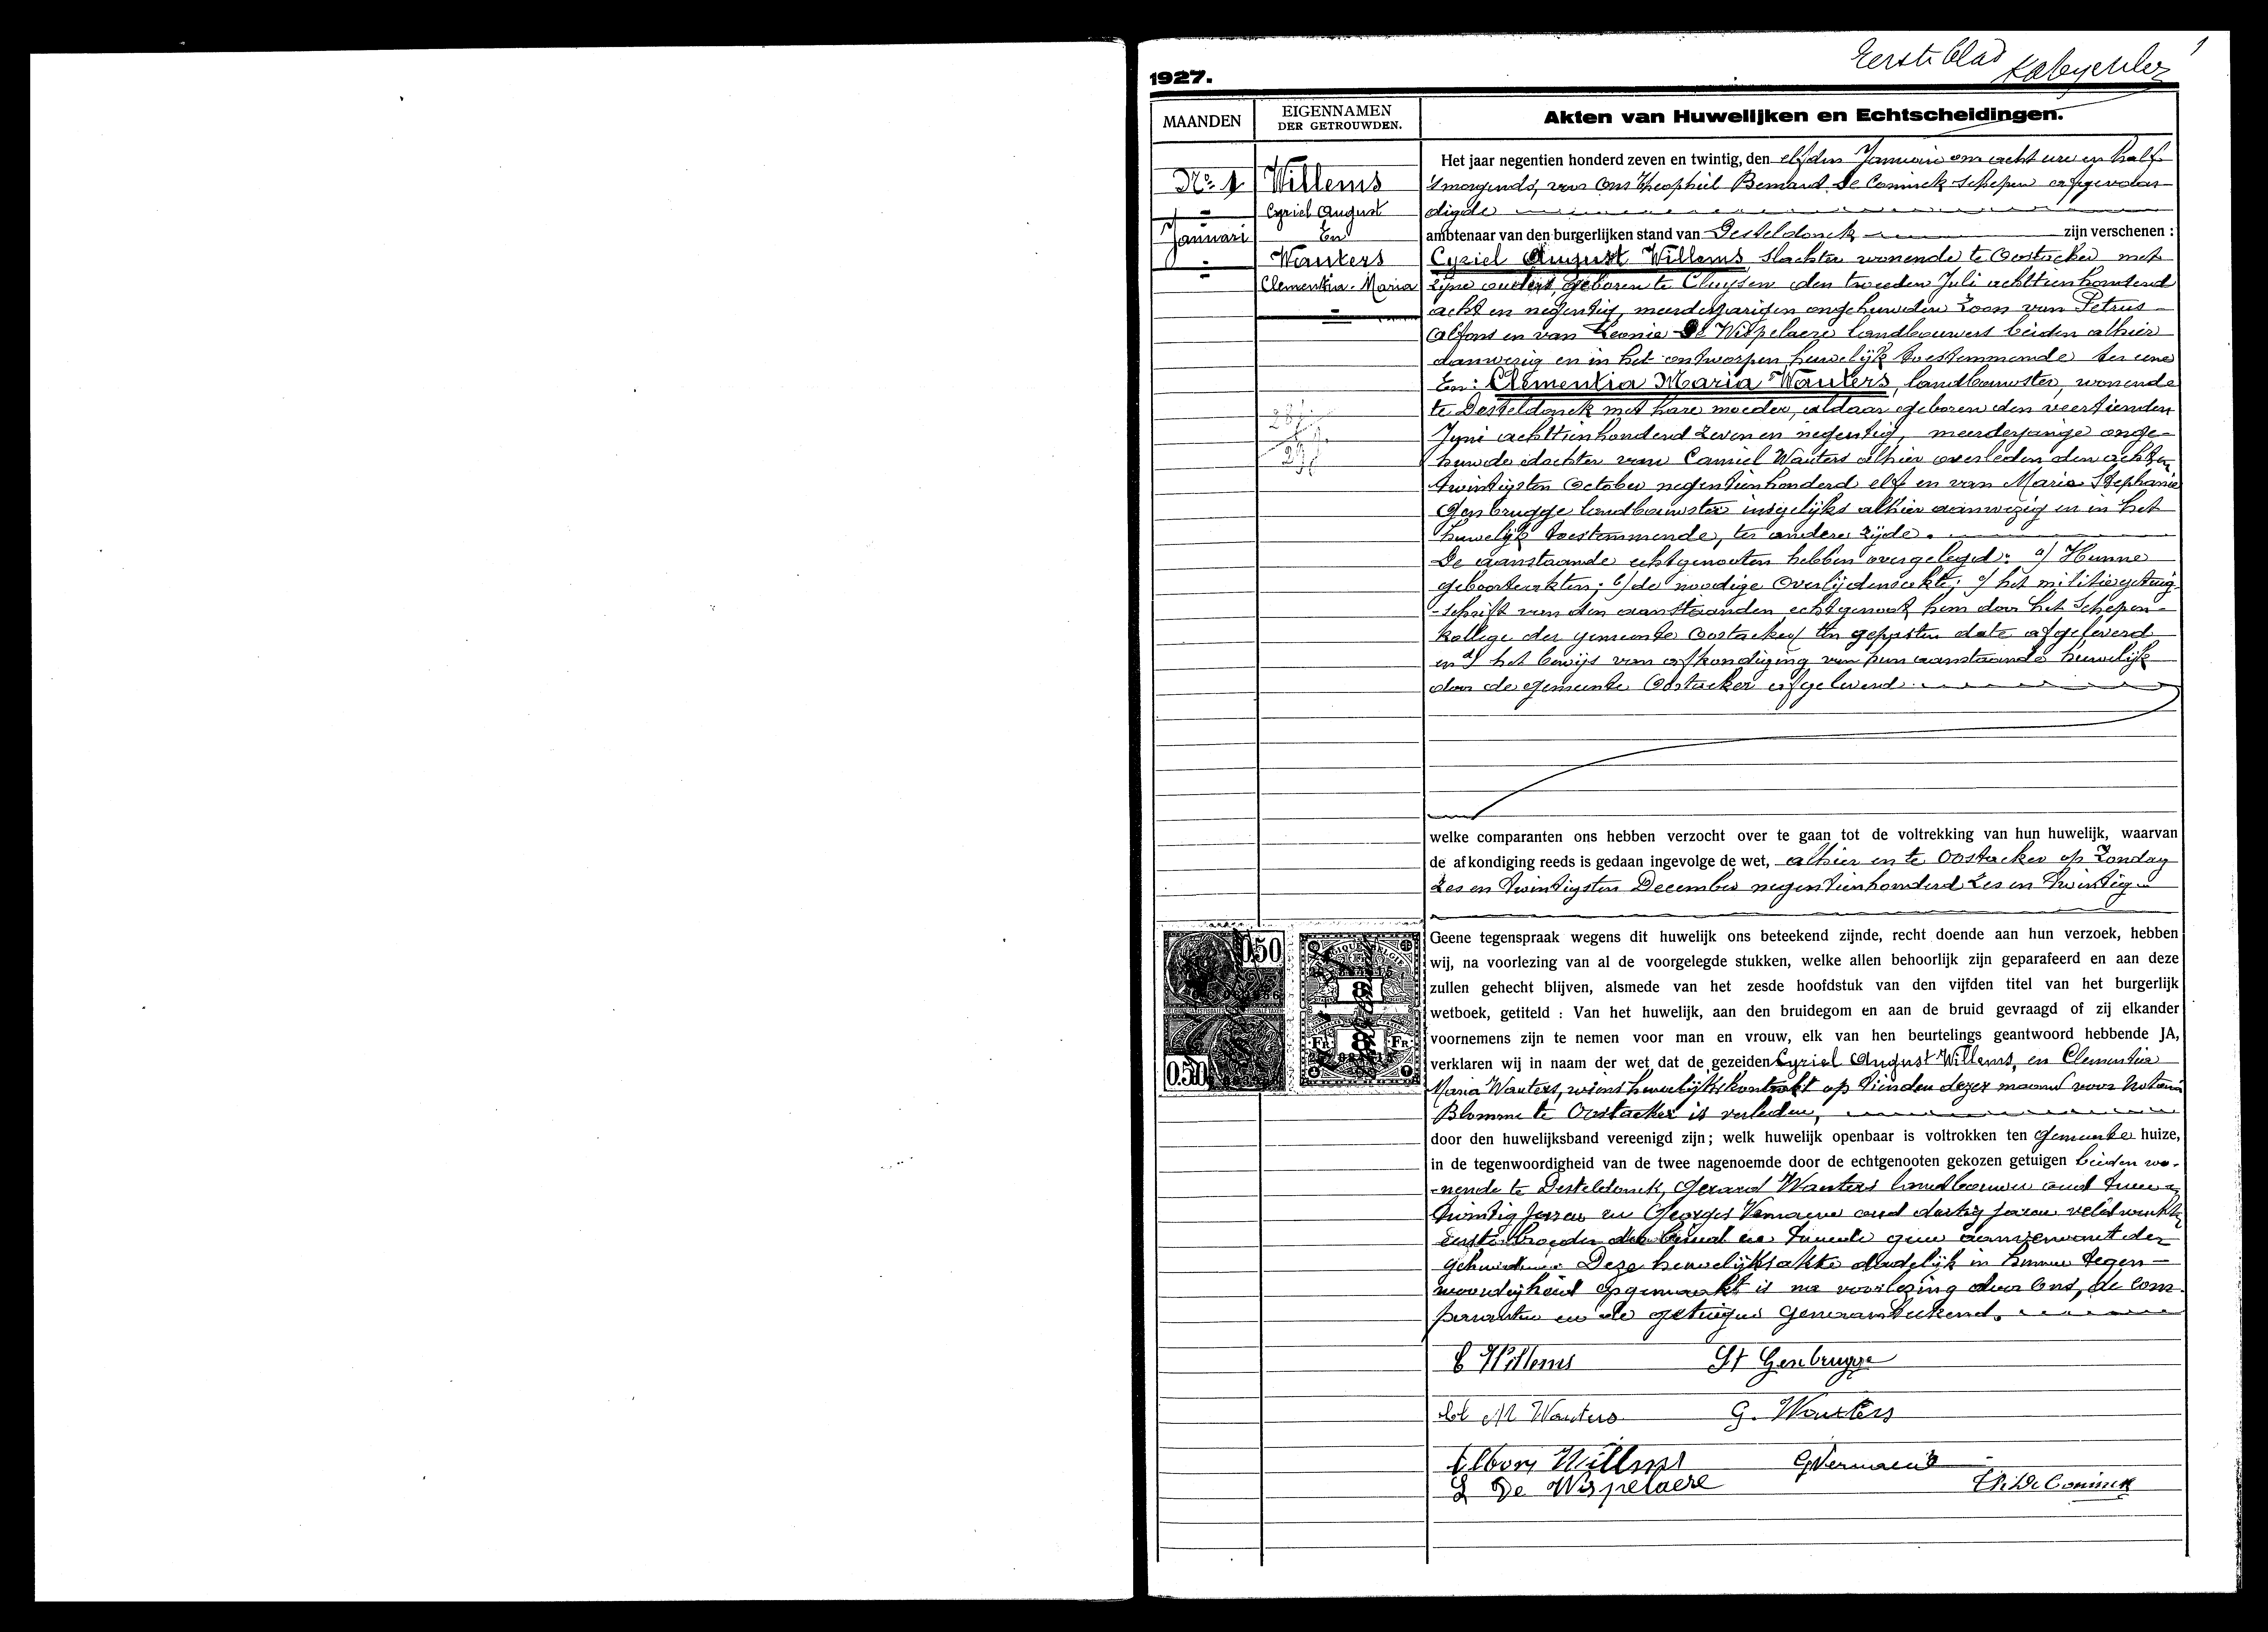 Eerste blad
1
1927.
MAANDEN
EIGENNAMEN
DER GETROUWDEN.
Akten van Huwelijken en Echtscheidingen.
No. 1
Januari
Willems
Cyriel August
En
Wauters
Clementia Maria
Het jaar negentien honderd zeven en twintig, den elfden Januari om acht ure en half
's morgends, voor Ons Theophiel Bernard De Coninck Schepen afgevaar
digde
ambtenaar van den burgerlijken stand van Desteldonck zijn verschenen :
Cyriel August Willems, slachter wonende te Oostacker met
zijne ouders, geboren te Cluysen den tweeden Juli achttienhonderd
acht en negentig, meerderjarigen ongehuwden zoon van Petrus
Alfons en van Leonie De Wispelaere landbouwers beiden alhier
aanwezig en in het ontworpen huwelijk toestemmende ter eene
En: Clementia Maria Wauters, landbouwster, wonende
te Desteldonck met hare moeder, aldaar geboren den veertienden
Juni achttienhonderd zeven en negentig, meerderjarige onge-
huwde dochter van Camiel Wauters alhier overleden den acht en
twintigsten October negentienhonderd elf en van Maria Stephanie
Gersbrugge landbouwster insgelijks alhier aanwezig en in het
huwelijk toestemmende, ter andere zijde.
De aanstaande echtgenooten hebben overgelegd: a/ Hunne
geboorteakten; b/ de noodige Overlijdensakte; c/ het militiegetuig
-schrift van den aanstaanden echtgenoot hem door het Schepen-
kollege der gemeente Oostacker ten gepasten date afgeleverd
en d/ het bewijs van afkondiging van hun aanstaande huwelijk
door de gemeente Oostacker afgeleverd.
welke comparanten ons hebben verzocht over te gaan tot de voltrekking van hun huwelijk, waarvan
de afkondiging reeds is gedaan ingevolge de wet, alhier en te Oostacker op Zondag
zes en twintigsten December negentienhonderd zes en twintig
0.50
0.50
FR
FR
Geene tegenspraak wegens dit huwelijk ons beteekend zijnde, recht doende aan hun verzoek, hebben
wij, na voorlezing van al de voorgelegde stukken, welke allen behoorlijk zijn geparafeerd en aan deze
zullen gehecht blijven, alsmede van het zesde hoofdstuk van den vijfden titel van het burgerlijk
wetboek, getiteld : Van het huwelijk, aan den bruidegom en aan de bruid gevraagd of zij elkander
voornemens zijn te nemen voor man en vrouw, elk van hen beurtelings geantwoord hebbende JA,
verklaren wij in naam der wet dat de gezeiden Cyriel August Willems, en Clementia
Maria Wauters, wiens huwelijkskontrakt op tienden dezer maand voor Notaris
Blomme te Oostacker is verleden,
door den huwelijksband vereenigd zijn; welk huwelijk openbaar is voltrokken ten Gemeente huize,
in de tegenwoordigheid van de twee nagenoemde door de echtgenooten gekozen getuigen beiden wo-
-nende te Desteldonck, Gerard Wauters landbouwer oud twee en
twintig jaren en Georges Vermaene oud dertig jaren veldwachter
eerste broeder der bruid en tweede geen aanverwant der
gehuwden. Deze huwelijksakte dadelijk in hunne tegen-
woordigheid opgemaakt is na voorlezing door Ons, de com-
paranten en de getuigen geneanteekend.
C Willems
St Gersbrugge
Cl M Wauters
G. Wauters
Alfons Willems
G Vermaene
L De Wispelaere
Th. De Coninck